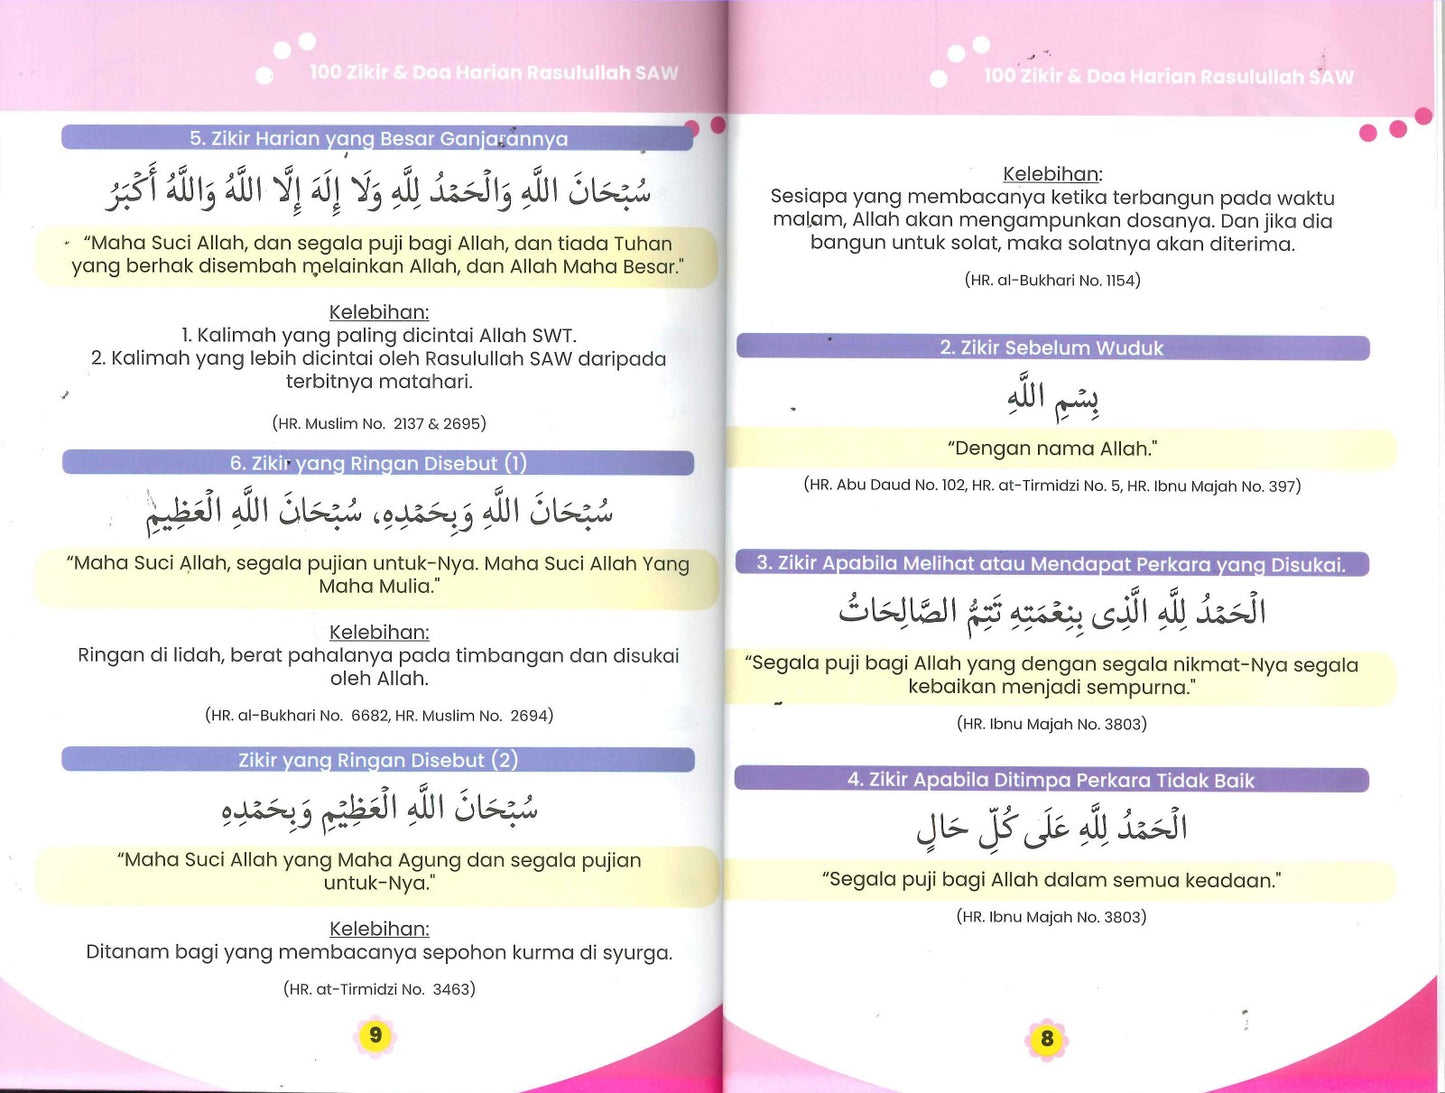 100 Zikir & Doa Harian Rasulullah SAW
Kelebihan:
Sesiapa yang membacanya ketika terbangun pada waktu
malam, Allah akan mengampunkan dosanya. Dan jika dia
bangun untuk solat, maka solatnya akan diterima.
(HR. al-Bukhari No. 1154)
2. Zikir Sebelum Wuduk
بِسْمِ اللَّهِ
“Dengan nama Allah."
(HR. Abu Daud No. 102, HR. at-Tirmidzi No. 5, HR. Ibnu Majah No. 397)
3. Zikir Apabila Melihat atau Mendapat Perkara yang Disukai.
الْحَمْدُ لِلَّهِ الَّذِى بِنِعْمَتِهِ تَتِمُّ الصَّالِحَاتُ
“Segala puji bagi Allah yang dengan segala nikmat-Nya segala
kebaikan menjadi sempurna."
(HR. Ibnu Majah No. 3803)
4. Zikir Apabila Ditimpa Perkara Tidak Baik
الْحَمْدُ لِلَّهِ عَلَى كُلِّ حَالٍ
“Segala puji bagi Allah dalam semua keadaan."
(HR. Ibnu Majah No. 3803)
8
100 Zikir & Doa Harian Rasulullah SAW
5. Zikir Harian yang Besar Ganjarannya
سُبْحَانَ اللَّهِ وَالْحَمْدُ لِلَّهِ وَلَا إِلَهَ إِلَّا اللَّهُ وَاللَّهُ أَكْبَرُ
“Maha Suci Allah, dan segala puji bagi Allah, dan tiada Tuhan
yang berhak disembah melainkan Allah, dan Allah Maha Besar."
Kelebihan:
1. Kalimah yang paling dicintai Allah SWT.
2. Kalimah yang lebih dicintai oleh Rasulullah SAW daripada
terbitnya matahari.
(HR. Muslim No. 2137 & 2695)
6. Zikir yang Ringan Disebut (1)
سُبْحَانَ اللَّهِ وَبِحَمْدِهِ، سُبْحَانَ اللَّهِ الْعَظِيمِ
“Maha Suci Allah, segala pujian untuk-Nya. Maha Suci Allah Yang
Maha Mulia."
Kelebihan:
Ringan di lidah, berat pahalanya pada timbangan dan disukai
oleh Allah.
(HR. al-Bukhari No. 6682, HR. Muslim No. 2694)
Zikir yang Ringan Disebut (2)
سُبْحَانَ اللَّهِ الْعَظِيْمِ وَبِحَمْدِهِ
“Maha Suci Allah yang Maha Agung dan segala pujian
untuk-Nya."
Kelebihan:
Ditanam bagi yang membacanya sepohon kurma di syurga.
(HR. at-Tirmidzi No. 3463)
9